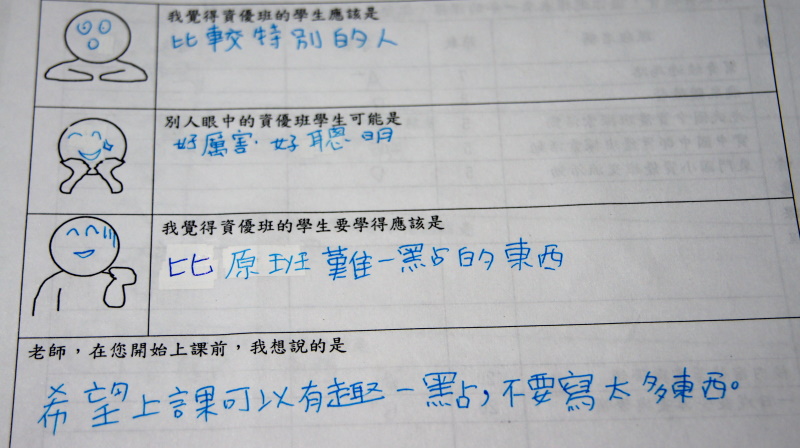 我覺得資優班的學生應該是
比較特別的人
別人眼中的資優班學生可能是
好厲害.好聰明
我覺得資優班的學生要學得應該是
比原班難一點的東西
老師，在您開始上課前，我想說的是
希望上課可以有趣一點，不要寫太多東西。